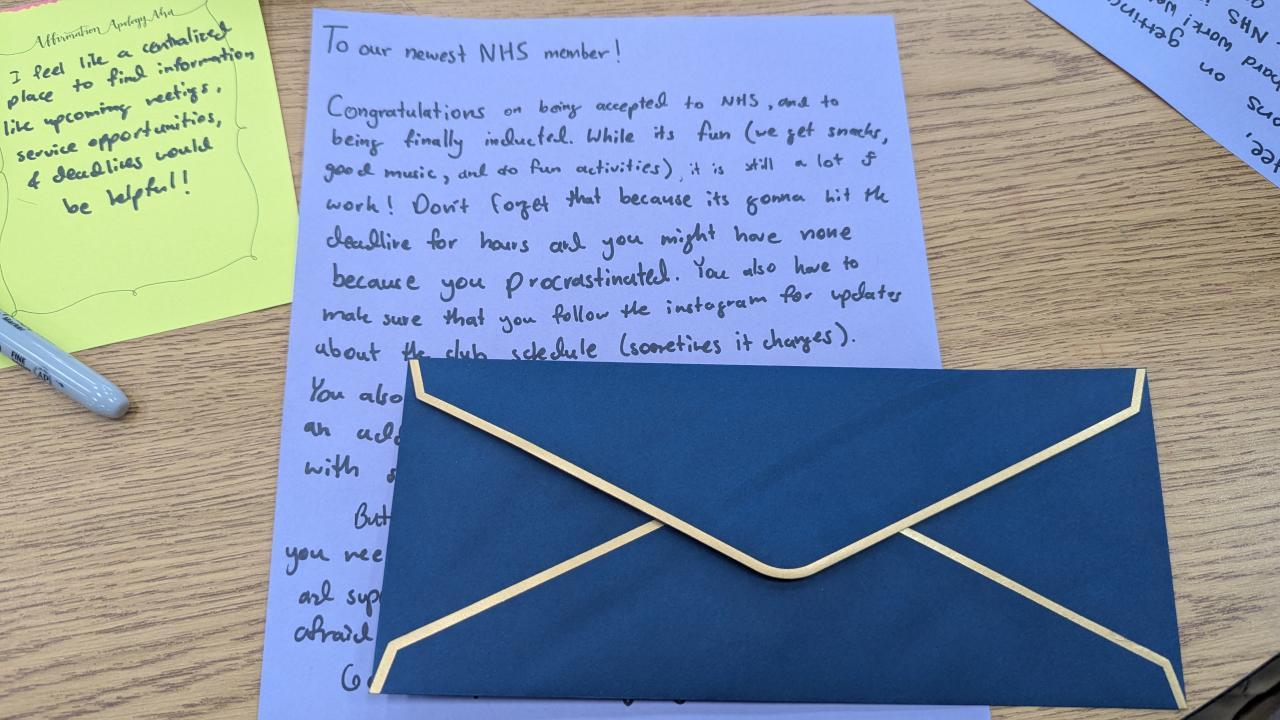 Affirmation Apology Aha
I feel like a centralized
place to find information
like upcoming meetings,
service opportunities,
& deadlines would
be helpful!
FINE
To our newest NHS member!
Congratulations on being accepted to NHS, and to
being finally inducted. While its fun (we get snacks,
good music, and do fun activities), it is still a lot of
work! Don't forget that because its gonna hit the
deadline for hours and you might have none
because you procrastinated. You also have to
make sure that you follow the instagram for updates
about the club schedule (sometimes it changes).
You also
an
with
But
you nee
and sup
afraid
getting
NHS
work!
hard
on